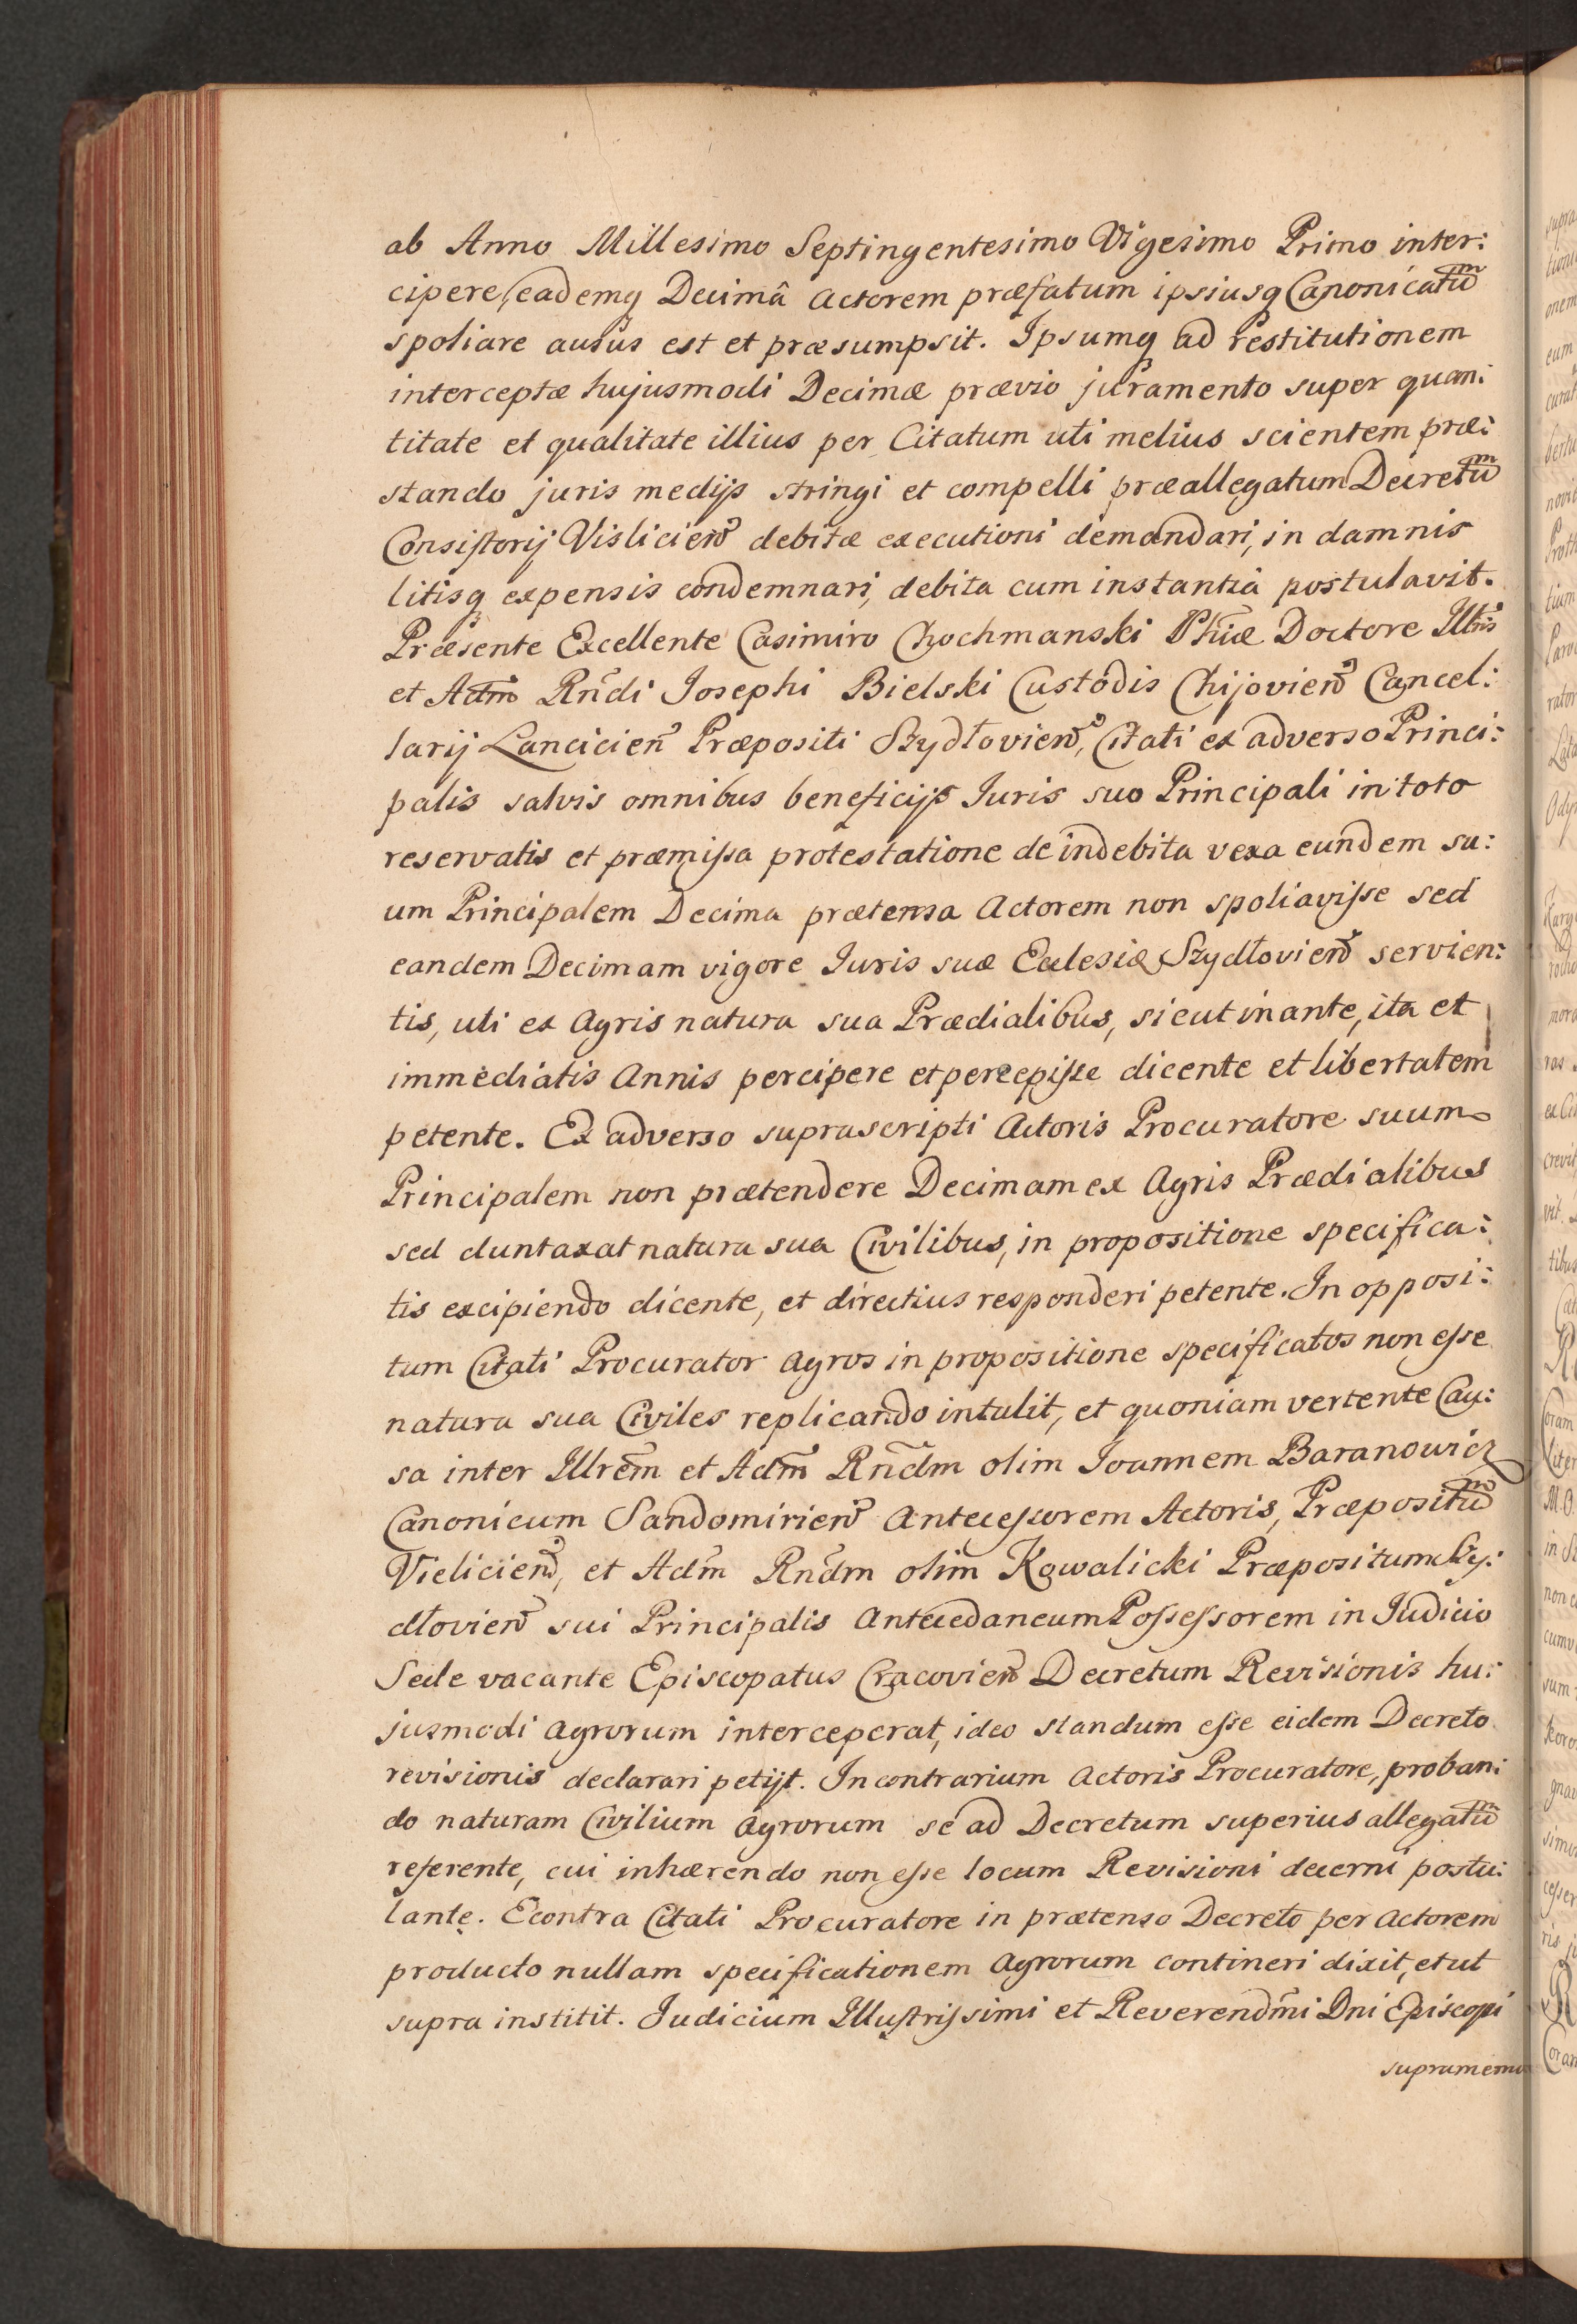 ab Anno Millesimo Septingentesimo Vigesimo Primo inter:
cipere, eademq Decimâ Actorem præfatum ipsiusq Canonicatũm
spoliare ausus est et præsumpsit. Ipsumq ad restitutionem
interceptæ hujusmodi Decimæ prævio juramento super quan:
titate et qualitate illius per Citatum uti melius scientem præ:
stando juris medijs stringi et compelli præallegatum Decretũm
Consistorij Vislicien̄ debitæ executioni demandari, in damnis
litisq expensis condemnari, debita cum instantia postulavit.
Præsente Excellente Casimiro Chochmanski Phiæ Doctore Illris
et Adm̄ Rñdi Josephi Bielski Custodis Chijovien̄ Cancel:
larij Lancicien̄ Præpositi Szydłovien̄, Citati ex adverso Princi:
palis salvis omnibus beneficijs Juris suo Principali in toto
reservatis et præmissa protestatione de indebita vexa eundem su:
um Principalem Decima prætensa Actorem non spoliavisse sed
eandem Decimam vigore Juris suæ Ecclesiæ Szydłovien̄ servien:
tis, uti ex Agris natura sua Prædialibus, sicut in ante, ita et
immediatis Annis percipere et percepisse dicente et libertatem
petente. Ex adverso suprascripti Actoris Procuratore suum
Principalem non prætendere Decimam ex Agris Prædialibus
sed duntaxat natura sua Civilibus, in propositione specifica:
tis excipiendo dicente, et directius responderi petente. In opposi:
tum Citati Procurator Agros in propositione specificatos non esse
natura sua Civiles replicando intulit, et quoniam vertente Cau:
sa inter Illrem̄ et Adm̄ Rñdm olim Joannem Baranowicz
Canonicum Sandomirien̄ Antecessorem Actoris, Præpositũm
Vielicien̄, et Adm̄ Rñdm olim Kowalicki Præpositum Szy:
dłovien̄ sui Principalis Antecedaneum Possessorem in Judicio
Sede vacante Episcopatus Cracovien̄ Decretum Revisionis hu:
jusmodi Agrorum interceperat, ideo standum esse eidem Decreto
revisionis declarari petijt. In contrarium Actoris Procuratore, proban:
do naturam Civilium Agrorum se ad Decretum superius allegatũm
referente, cui inhærendo non esse locum Revisioni decerni postu:
lante. Econtra Citati Procuratore in prætenso Decreto per Actorem
producto nullam specificationem Agrorum contineri dixit, et ut
supra institit. Judicium Illustrissimi et Reverendm̄i Dni Episcopi
supramemo